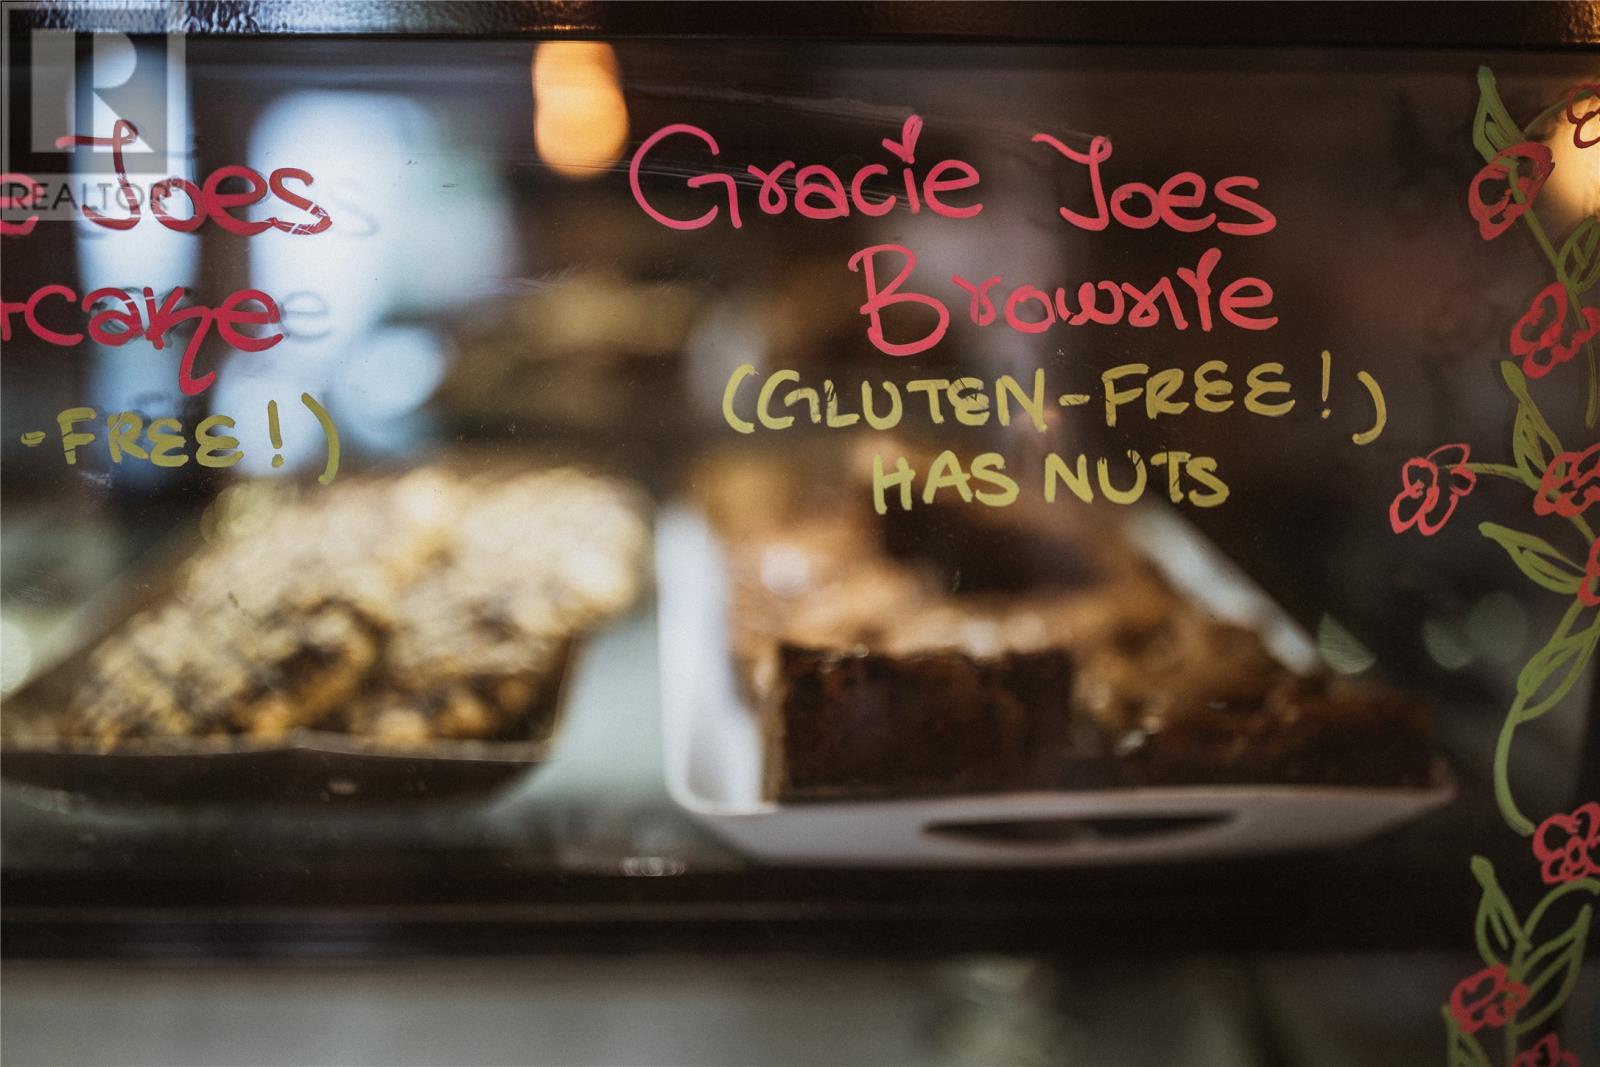 REALTOR
e Joes
rcake
-FREE!)
Gracie Joes
Brownie
(GLUTEN-FREE!)
HAS NUTS